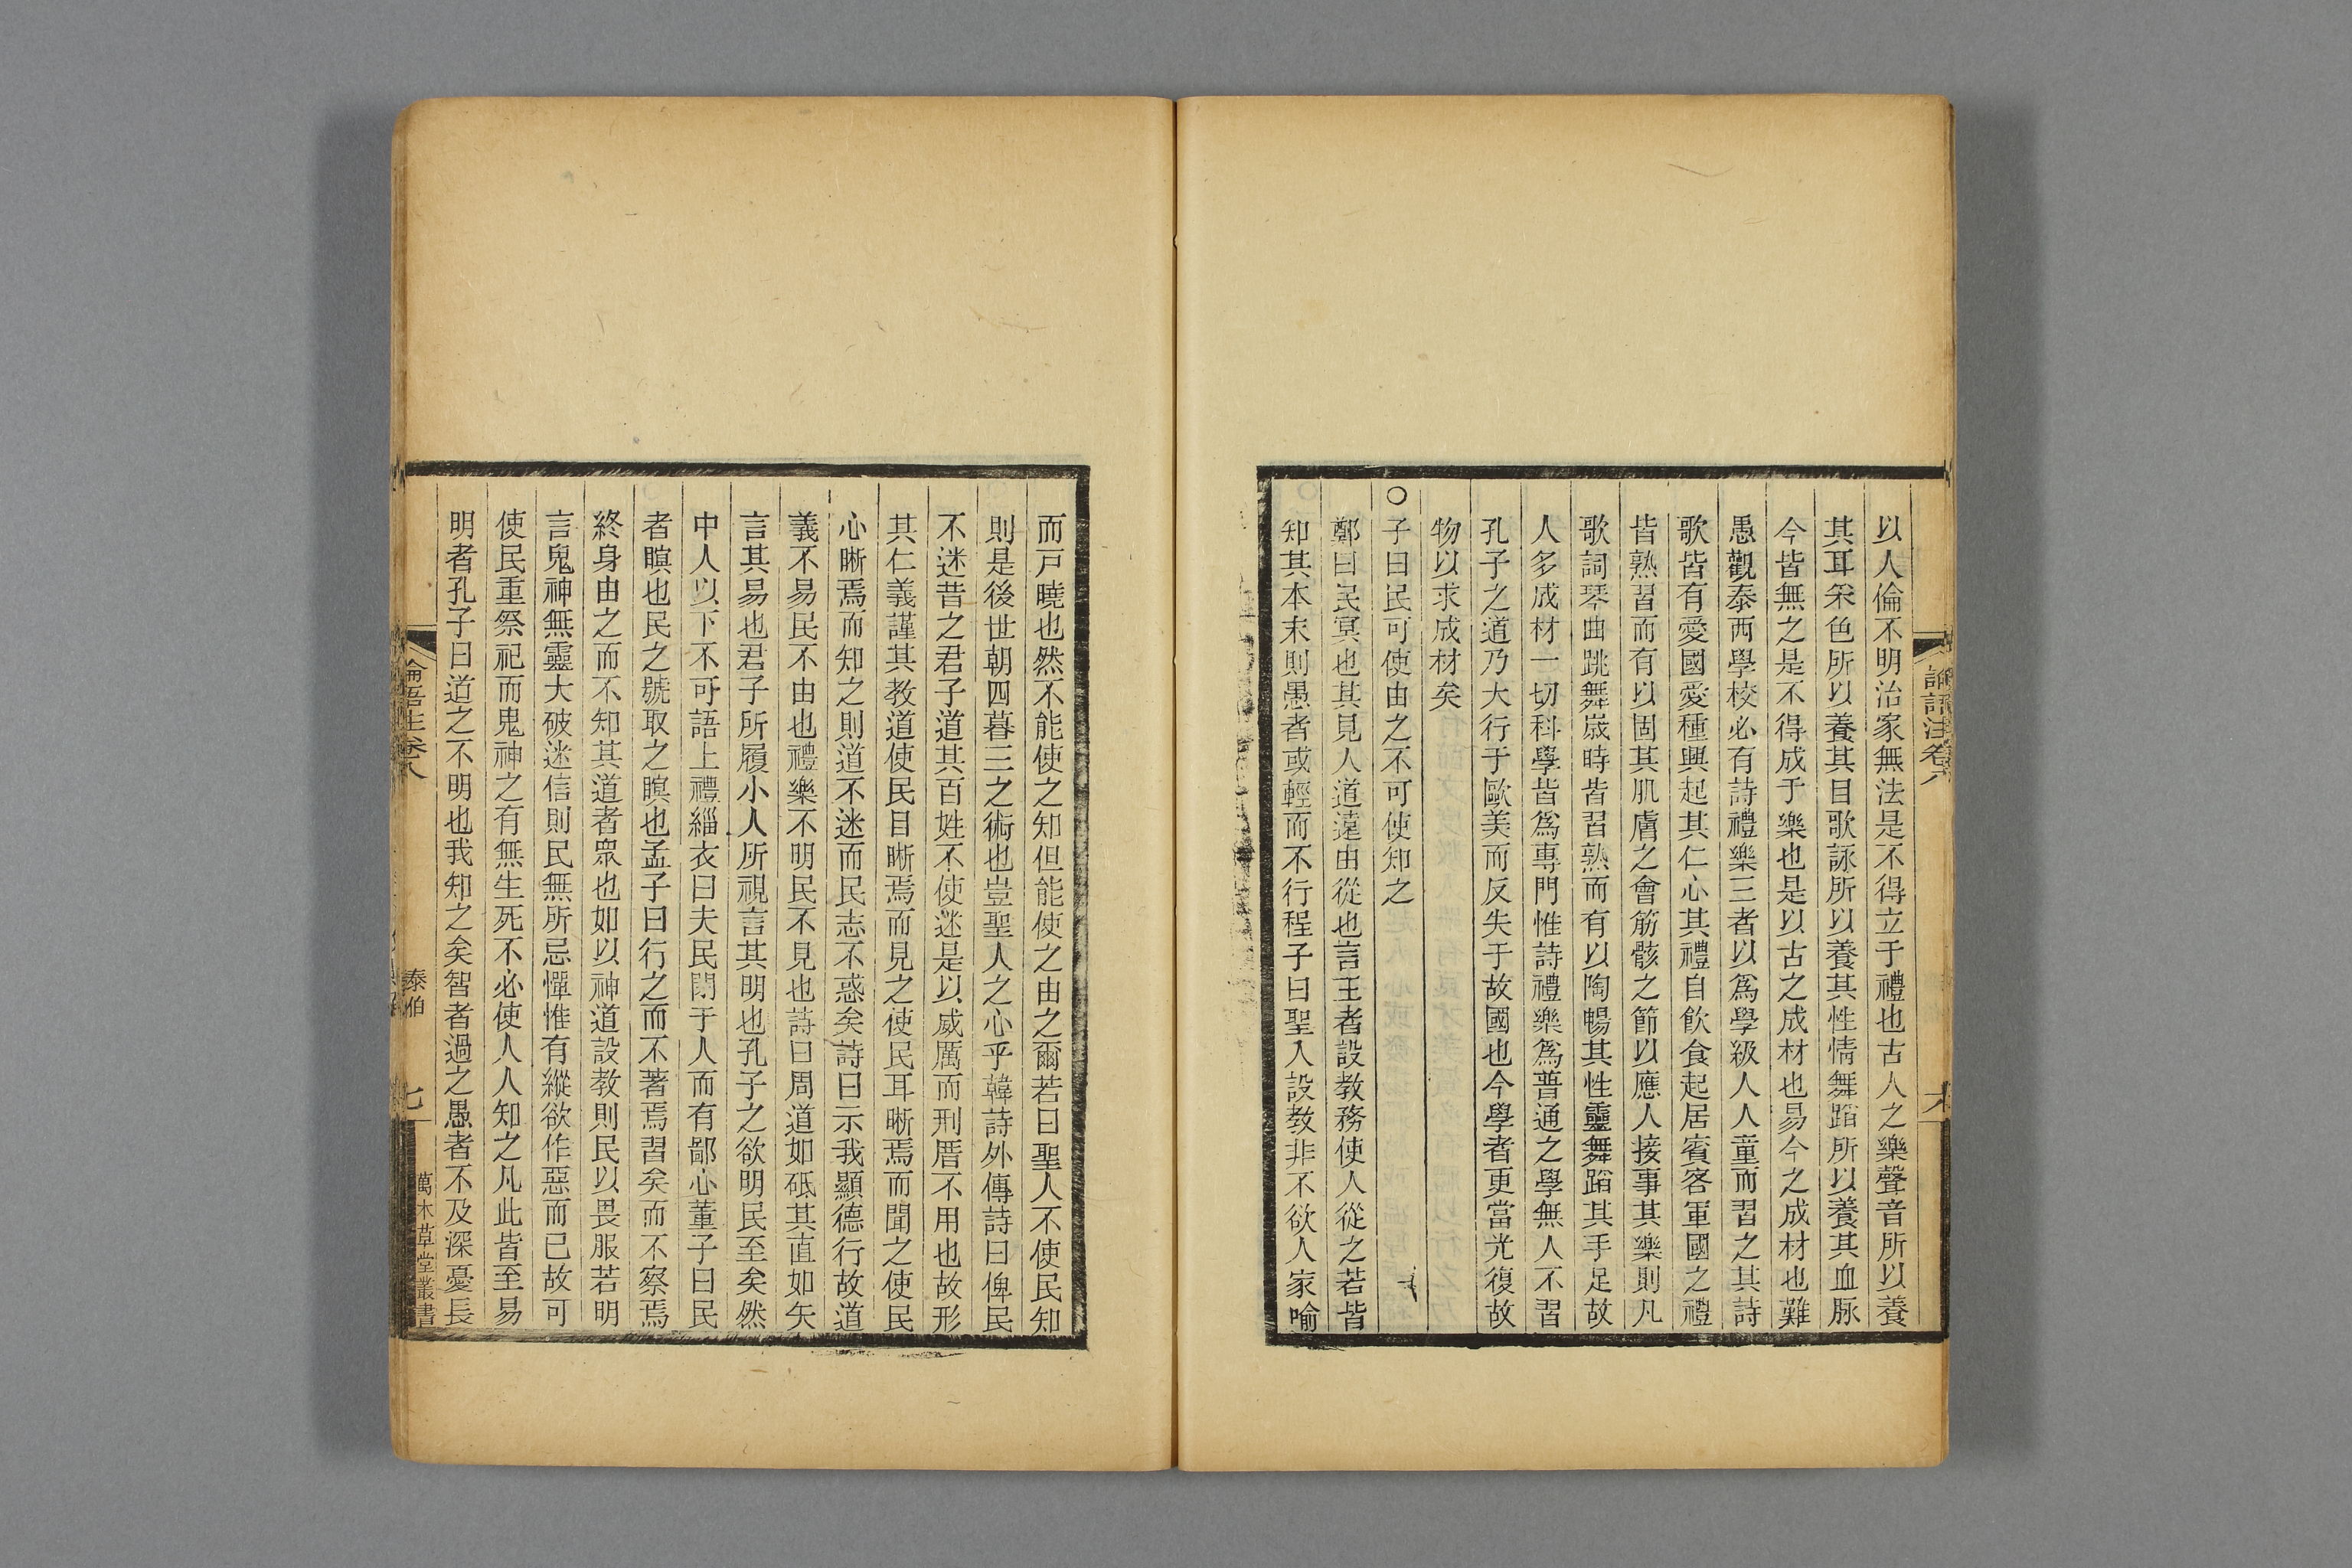 論語注卷八
六
以人倫不明治家無法是不得立于禮也古人之樂聲音所以養
其耳采色所以養其目歌詠所以養其性情舞蹈所以養其血脈
今皆無之是不得成于樂也是以古之成材也易今之成材也難
愚觀泰西學校必有詩禮樂三者以爲學級人人童而習之其詩
歌皆有愛國愛種興起其仁心其禮自飲食起居賓客軍國之禮
皆熟習而有以固其肌膚之會筋骸之節以應人接事其樂則凡
歌詞琴曲跳舞歲時皆習熟而有以陶暢其性靈舞蹈其手足故
人多成材一切科學皆爲專門惟詩禮樂爲普通之學無人不習
孔子之道乃大行于歐美而反失于故國也今學者更當光復故
物以求成材矣
○子曰民可使由之不可使知之
鄭曰民冥也其見人道遠由從也言王者設教務使人從之若皆
知其本末則愚者或輕而不行程子曰聖人設教非不欲人家喻
而戸曉也然不能使之知但能使之由之爾若曰聖人不使民知
則是後世朝四暮三之術也豈聖人之心乎韓詩外傳詩曰俾民
不迷昔之君子道其百姓不使迷是以威厲而刑厝不用也故形
其仁義謹其教道使民目晰焉而見之使民耳晰焉而聞之使民
心晰焉而知之則道不迷而民志不惑矣詩曰示我顯德行故道
義不易民不由也禮樂不明民不見也詩曰周道如砥其直如矢
言其易也君子所履小人所視言其明也孔子之欲明民至矣然
中人以下不可語上禮緇衣曰夫民閉于人而有鄙心董子曰民
者瞑也民之號取之瞑也孟子曰行之而不著焉習矣而不察焉
終身由之而不知其道者眾也如以神道設教則民以畏服若明
言鬼神無靈大破迷信則民無所忌憚惟有縱欲作惡而已故可
使民重祭祀而鬼神之有無生死不必使人人知之凡此皆至易
明者孔子曰道之不明也我知之矣智者過之愚者不及深憂長
論語注卷八
泰伯
七
萬木草堂叢書